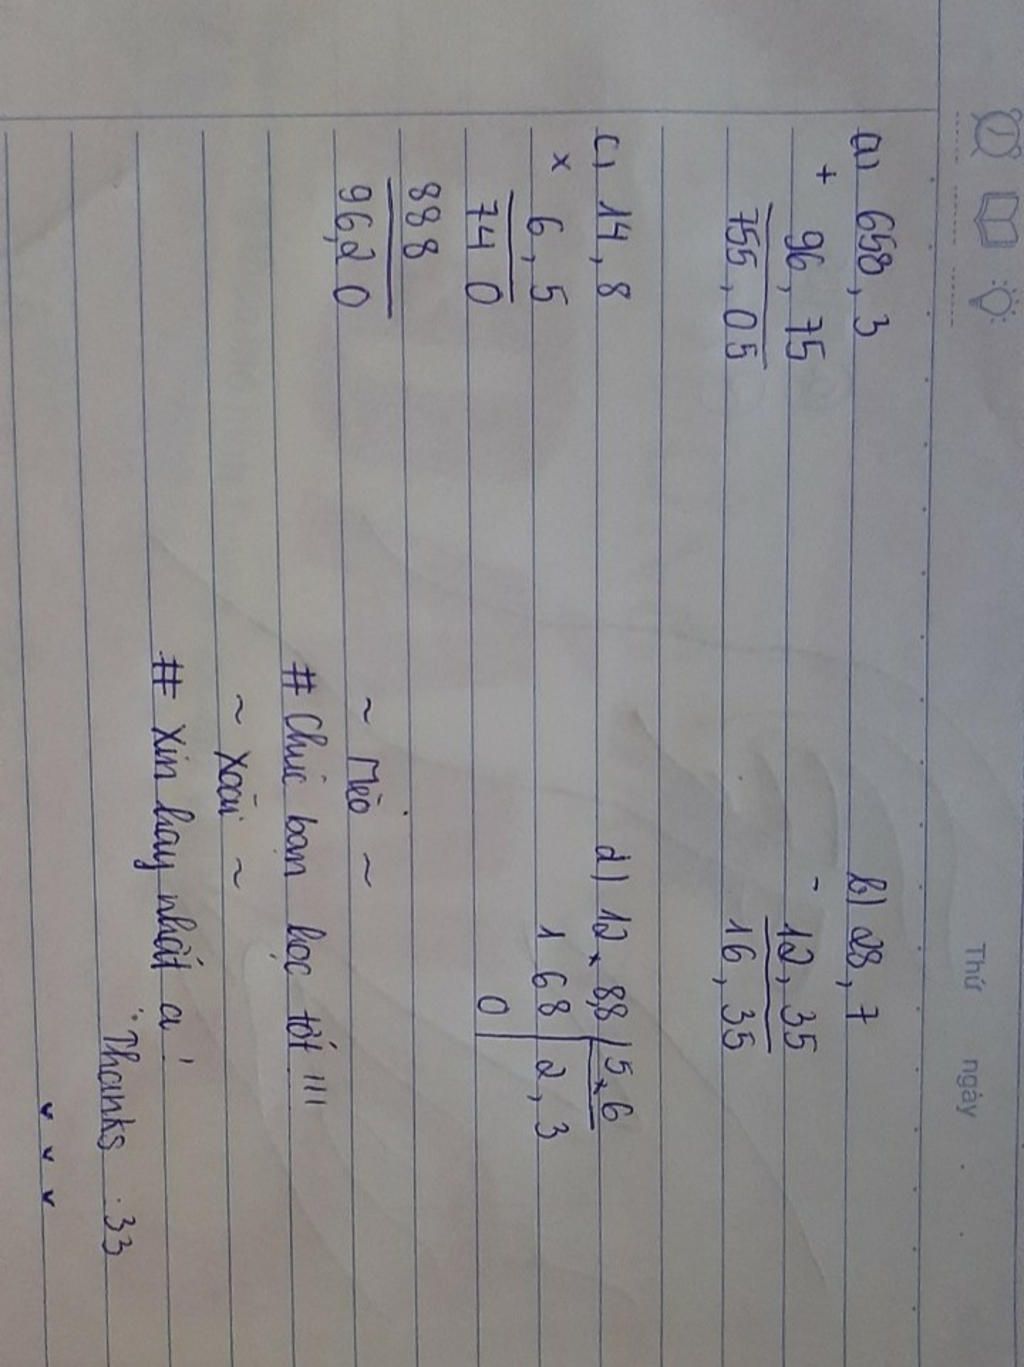 Thứ ngày
a) 658,3
+ 96,75
755,05
b) 28,7
- 12,35
16,35
c) 14,8
x 6,5
74 0
88 8
96,2 0
d) 12,8,8 5,6
1 68 2,3
0
~ Mèo ~
# Chúc bạn học tốt !!!
~ Xoài ~
# Xin hay nhất ạ!
Thanks :33